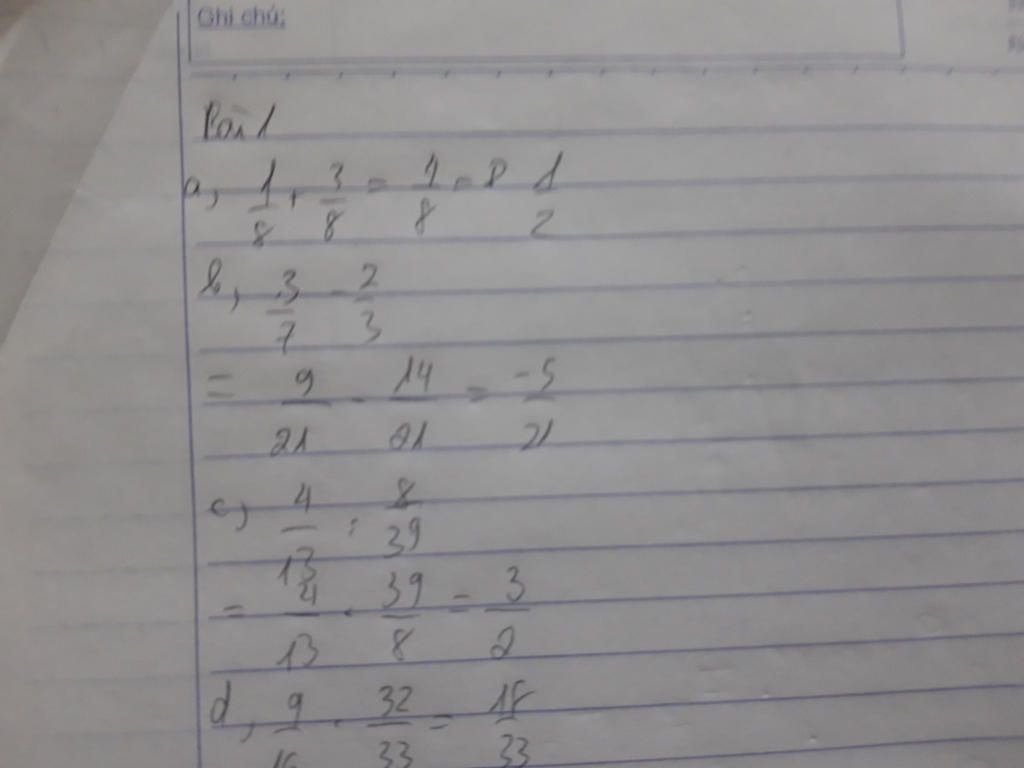 Ghi chú:
Bài 1
a, 1/8 + 3/8 = 4/8 = 1/2
b, 3/7 - 2/3
= 9/21 - 14/21 = -5/21
c, 4/13 : 8/39
= 4/13 . 39/8 = 3/2
d, 9/16 . 32/33 = 18/33